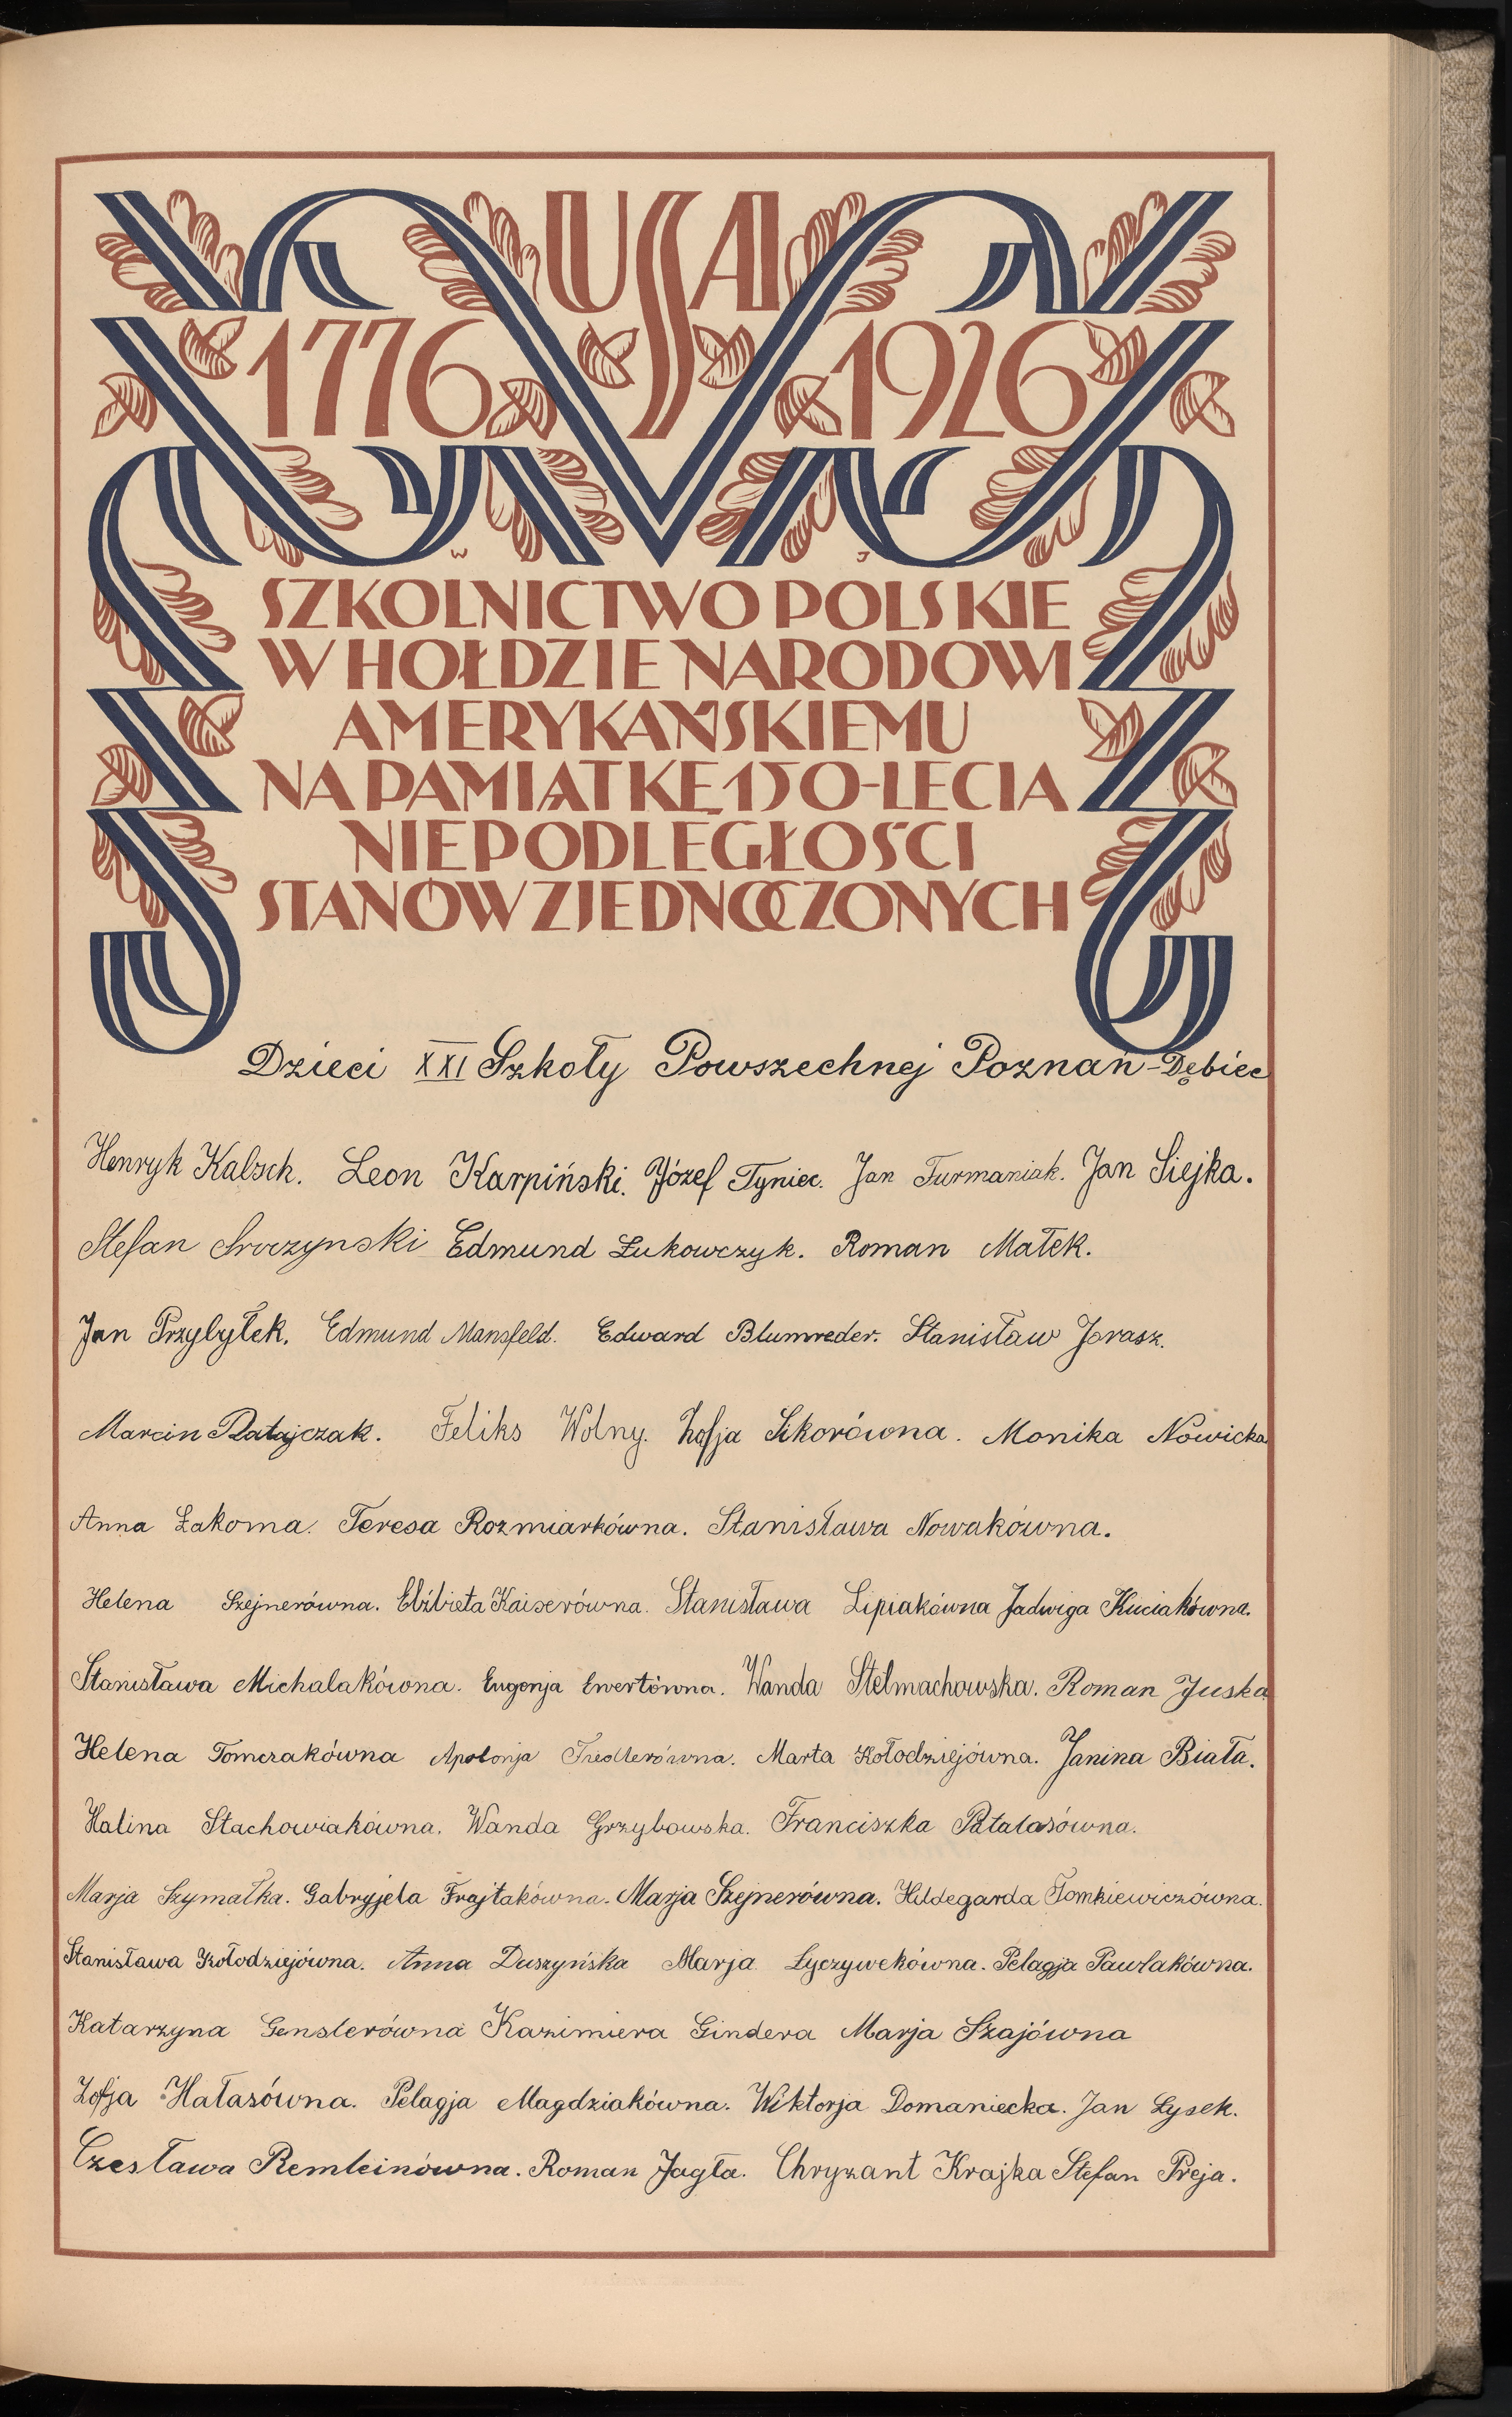 USA
1776 1926
W J
SZKOLNICTWO POLSKIE
W HOŁDZIE NARODOWI
AMERYKAŃSKIEMU
NA PAMIĄTKĘ 150-LECIA
NIEPODLEGŁOŚCI
STANÓW ZJEDNOCZONYCH
Dzieci XXI Szkoły Powszechnej Poznań-Dębiec
Henryk Kalsch. Leon Karpiński. Józef Tyniec. Jan Furmaniak. Jan Siejka.
Stefan Sroczynski Edmund Łukowczyk. Roman Małek.
Jan Przybyłek. Edmund Mansfeld. Edward Blumreder. Stanisław Jorasz.
Marcin Ratajczak. Feliks Wolny. Zofja Sikorówna. Monika Nowicka
Anna Łakoma. Teresa Rozmiarkówna. Stanisława Nowakówna.
Helena Szejnerówna. Elżbieta Kaiserówna. Stanisława Lipiakówna Jadwiga Kuciakówna.
Stanisława Michalakówna. Eugenja Ewertówna. Wanda Stelmachowska. Roman Juska
Helena Tomczakówna Apolonja Fiedlerówna. Marta Kołodziejówna. Janina Biała.
Halina Stachowiakówna. Wanda Grzybowska. Franciszka Patalasówna.
Marja Szymałka. Gabryjela Frajtakówna. Marja Szejnerówna. Hildegarda Tomkiewiczówna.
Stanisława Kołodziejówna. Anna Duszyńska Marja Łyczywekówna. Pelagja Pawlakówna.
Katarzyna Genslerówna Kazimiera Gindera Marja Szajówna
Zofja Hałasówna. Pelagja Magdziakówna. Wiktorja Domaniecka. Jan Łysek.
Czesława Remleinówna. Roman Jagła. Chryzant Krajka Stefan Preja.